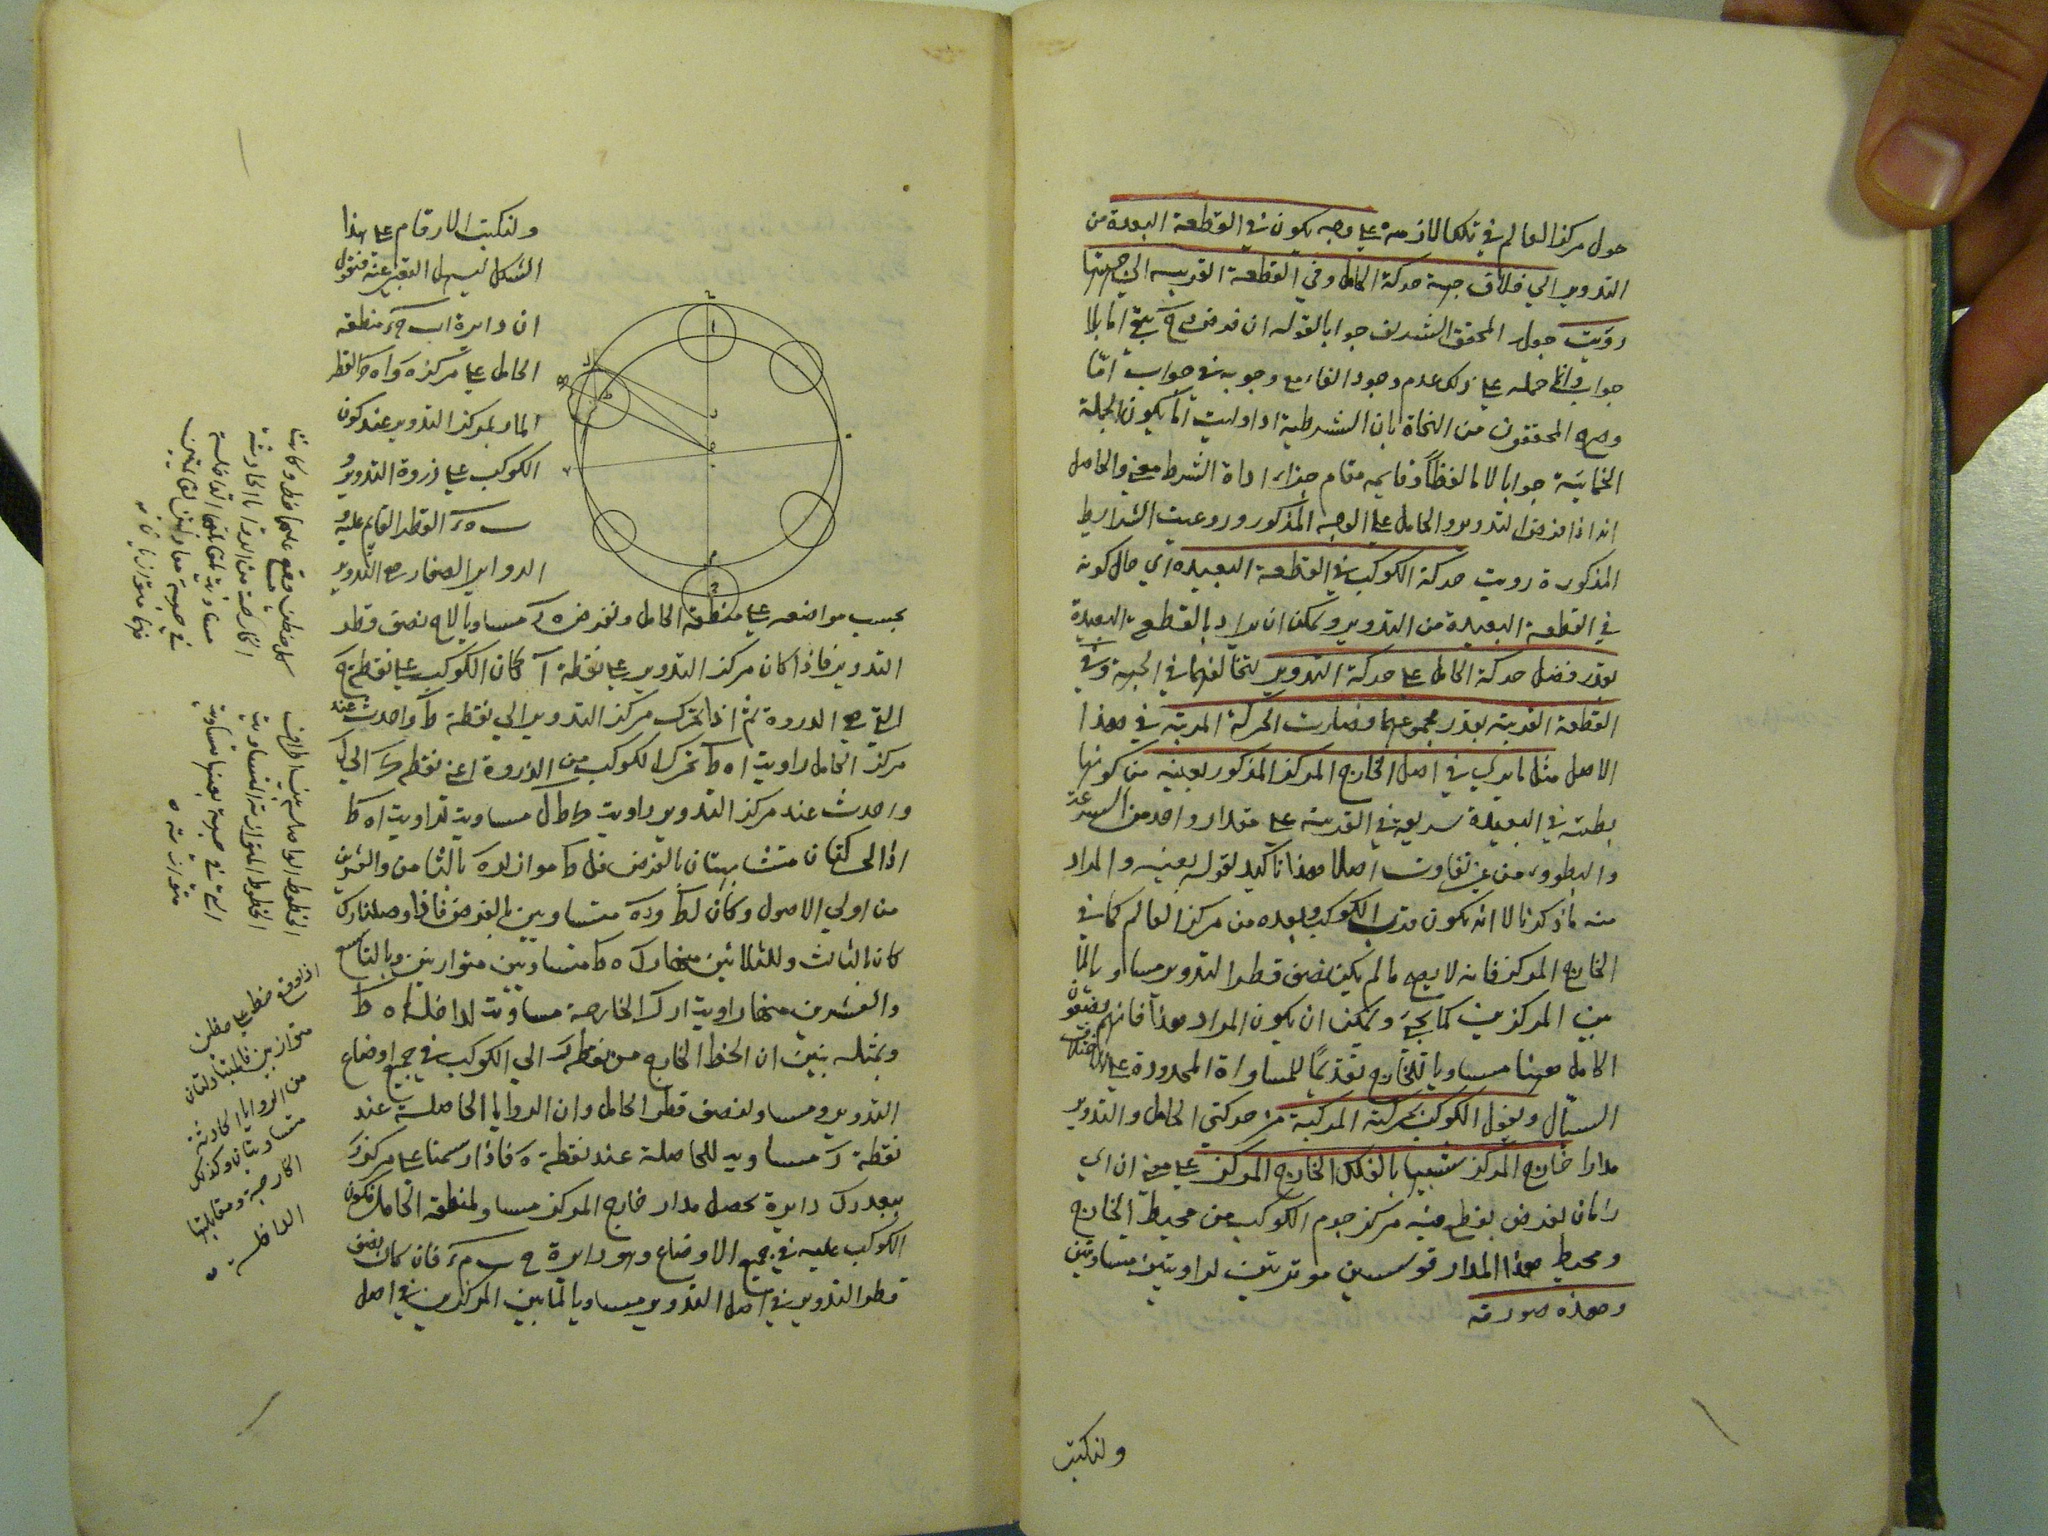 حول مركز العالم في تلك الازمنة على وجه يكون في القطعة البعيدة من
التدوير الى خلاف جهة حركة الحامل وفي القطعة القريبة الى جهتها
رؤيت جعل المحقق الشريف جوابا لقوله ان فرض
جواب حمله على ذلك عدم وجود الفاء مع وجوبه في جواب امّا
وصرح المحققون من النحاة بان الشرطية اذا وليت امّا يكون الجملة
الجزائية جوابا لاما لفظاً وقايمه مقام جزاء اداة الشرط معنى والحاصل
انه اذا فرض التدوير والحامل على الوجه المذكور وروعيت الشرايط
المذكورة رويت حركة الكوكب في القطعة البعيده اي حال كونه
في القطعة البعيدة من التدوير ويمكن ان يراد بالقطعة البعيدة
بقدر فضل حركة الحامل على حركة التدوير لتخالفهما في الجهة وفي
القطعة القريبة بقدر مجموعهما وصارت الحركة المرئية في هذا
الاصل مثل ما يرى في اصل الخارج المركز المذكور بعينه من كونها
بطيئة في البعيدة سريعة في القريبة على مقدار واحد من السرعة
والبطوء من غير تفاوت اصلا هذا تاكيد لقوله بعينه والمراد
منه ما ذكرنا لا انه يكون قرب الكوكب وبعده من مركز العالم كما في
الخارج المركز فانه لا يصح ما لم يكن نصف قطر التدوير مساويا لما
بين المركزين كما يجيء ويمكن ان يكون المراد هذا فانهم
الحامل ههنا مساويا للخارج تقديمًا للمساواة المحدودة على
السؤال ويفعل الكوكب بحركته المركبة من حركتي الحامل والتدوير
مدارا خارج المركز شبيها بالفلك الخارج المركز على معنى ان اي
زمان يفرض يقطع فيه مركز جرم الكوكب من محيط الخارج
ومحيط هذا المدار قوسين موترتين لزاويتين متساويتين
وهذه صورته
ولنكتب
ولنكتب الارقام على هذا
الشكل ليسهل التعبير عنه فنقول
ان دايرة ا ب ج د منطقة
الحامل على مركزه و ا ه ج القطر
المار بمركز التدوير عند كون
الكوكب على ذروة التدوير و
ب ه د القطر القايم عليه و
الدواير الصغار هي التدوير
بحسب مواضعه على منطقة الحامل ونفرض ه ر مساويا لاح نصف قطر
التدوير فاذا كان مركز التدوير على نقطة آ كان الكوكب على نقطة ح
التي هي الذروة ثم اذا تحرك مركز التدوير الى نقطة ط واحدث عند
مركز الحامل زاوية ا ه ط تحرك الكوكب من الذروة اعني نقطة ى الى ك
واحدث عند مركز التدوير زاوية ى ط ك مساوية لزاوية ا ه ط
اذ الحركتان متشابهتان بالفرض فك ط مواز لـ ر ه بالثامن والعشرين
من اولى الاصول وكان ك ط و ر ه متساويين بالفرض فاذا وصلنا ر ك
كان بالثالث والثلاثين منها ر ك ه ط متساويين متوازيين وبالتاسع
والعشرين منها زاوية ا ر ك الخارجة مساوية لداخلة ا ه ط
وبمثله نبين ان الخط الخارج من نقطة ر الى الكوكب في جميع اوضاع
التدوير مساو لنصف قطر الحامل وان الزوايا الحاصلة عند
نقطة ر مساوية للحاصلة عند نقطة ه فاذا رسمنا على مركز ر
ببعد ر ك دايرة يحصل مدار خارج المركز مساو لمنطقة الحامل فيكون
الكوكب عليه في جميع الاوضاع وهو دايرة ح ب م د فان كان نصف
قطر التدوير في اصل التدوير مساويا لما بين المركزين في اصل
كل خطين وقع عليهما خط وكانت
الخارجة من الزوايا الحادثة
مساوية لمقابلتها الداخلة
فهما متوازيان
الخطوط الواصلة بين اطراف
الخطوط المتوازية المتساوية
التي في جهة بعينها متساوية
متوازية
اذا وقع خط على خطين
متوازيين فالمتبادلتان
من الزوايا الحادثة
متساويتان وكذلك
الخارجة ومقابلتها
الداخلة